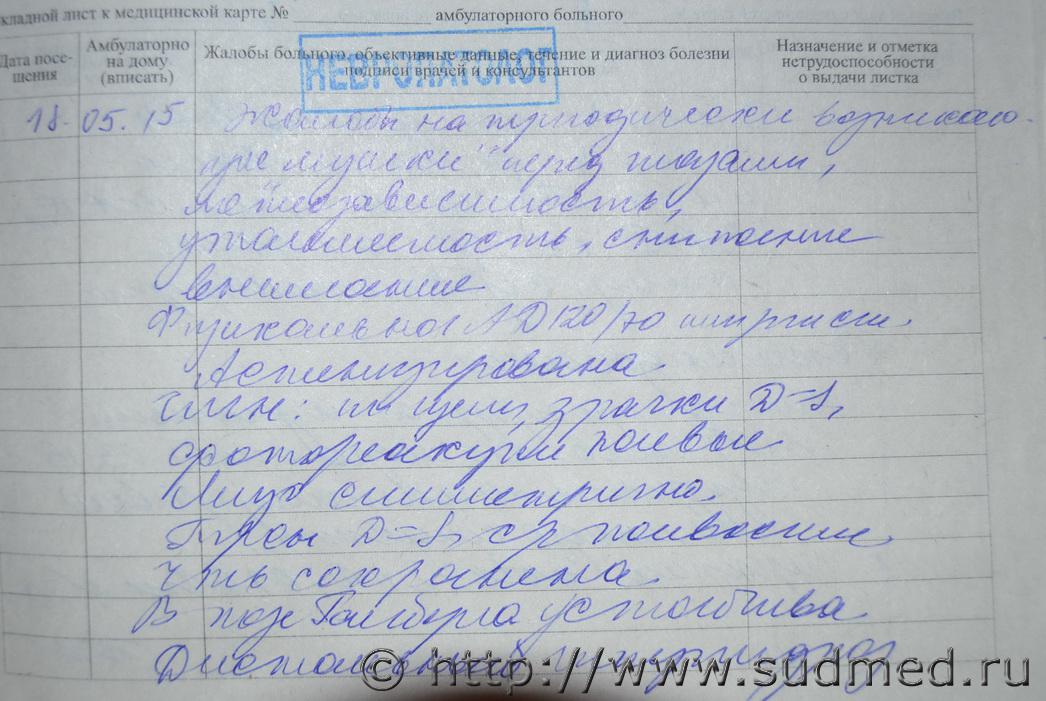 кладной лист к медицинской карте № амбулаторного больного
Дата посе-
щения
Амбулаторно
на дому
(вписать)
Жалобы больного, объективные данные, течение и диагноз болезни
подписи врачей и консультантов
Назначение и отметка
нетрудоспособности
о выдачи листка
НЕВРОПАТОЛОГ
18. 05. 15 Жалобы на периодически возникаю-
щие "мушки" перед глазами,
метеозависимость,
утомляемость, снижение
внимание
АД 120/70
Астенизирована
ЧМН: гл щели, зрачки D=S,
фотореакции живые
Лицо симметрично.
D=S, ср живости
Ч-ть сохранена
В позе Ромберга устойчива
Дистальный гипергидроз
© http://www.sudmed.ru